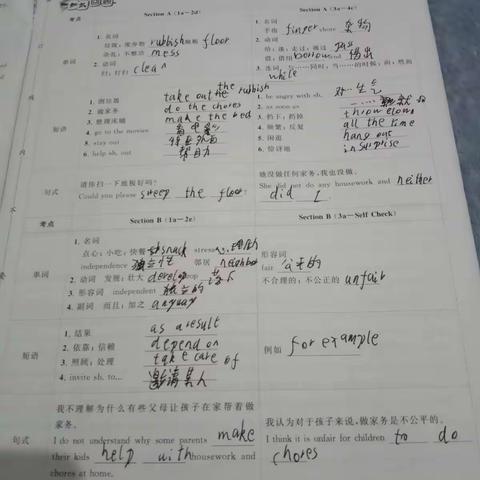 考点 Section A (1a—2d) Section A (3a—4c)
单词
1. 名词
垃圾;废弃物 rubbish 地板 floor
杂乱;不整洁 mess
2. 动词
1. 名词
手指 finger chore 杂物
2. 动词
给;递;走过;通过 pass
借用 borrow
3. 连词 与……同时;当……的时候;而;然而
while
短语
1. 倒垃圾 take out the rubbish
2. 做家务 do the chores
3. 整理床铺 make the bed
4. go to the movies 看电影
5. stay out 待在外面
6. help sb. out
1. be angry with sb.
2. as soon as
3. 扔下;扔掉 throw down
4. 频繁;反复 all the time
5. 闲逛 hang out
6. 惊讶地 in surprise
句式
请你扫一下地板好吗?
Could you please sweep the floor?
她没做任何家务,我也没做。
She did not do any housework and neither
did I.
考点 Section B (1a—2e) Section B (3a—Self Check)
单词
1. 名词
点心;小吃;快餐 snack
independence 独立性 邻居 neighbor
2. 动词 发展;壮大 develop
3. 形容词 independent 独立的
4. 副词 而且;加之 anyway
形容词
fair 公平的
不合理的;不公正的 unfair
短语
1. 结果 as a result
2. 依靠;信赖 depend on
3. 照顾;处理 take care of
4. invite sb. to... 邀请某人
例如 for example
句式
我不理解为什么有些父母让孩子在家帮着做
家务。
I do not understand why some parents make
their kids help with housework and
chores at home.
我认为对于孩子来说,做家务是不公平的。
I think it is unfair for children to do
chores